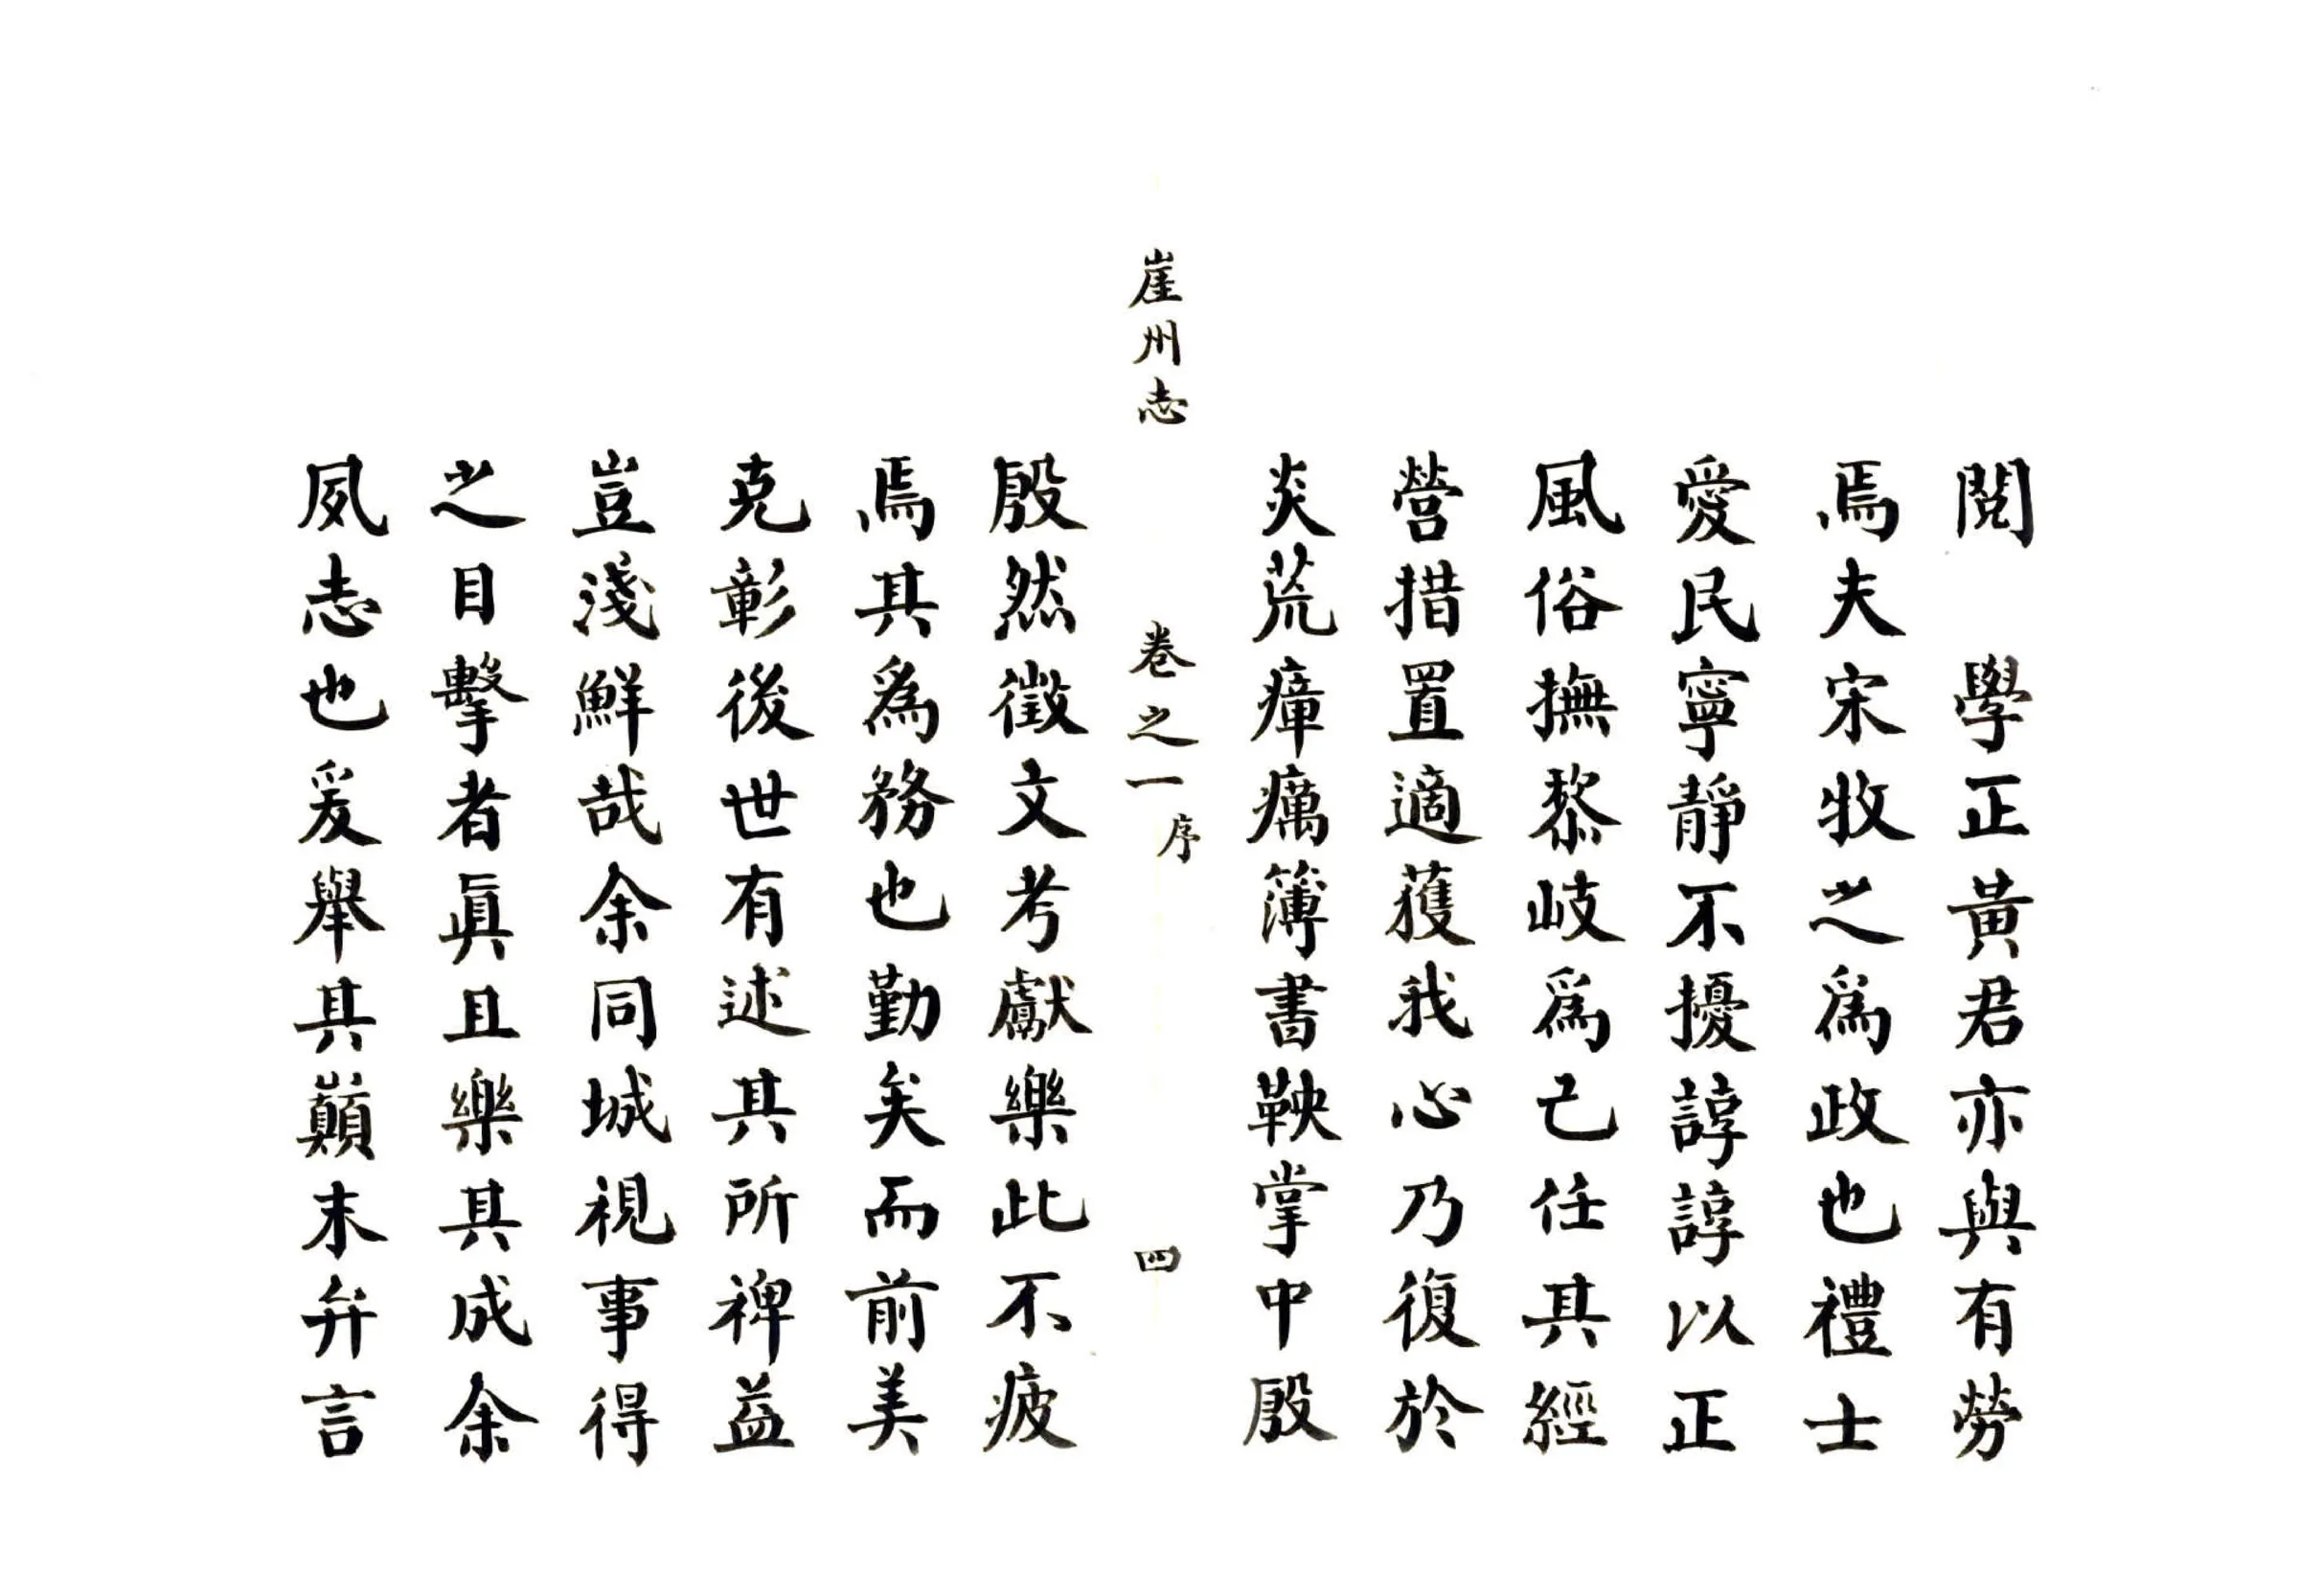 閱　學正黃君亦與有勞
焉夫宋牧之爲政也禮士
愛民寧靜不擾諄諄以正
風俗撫黎岐爲己任其經
營措置適獲我心乃復於
炎荒瘴癘簿書鞅掌中殷
崖州志　卷之一　序　四
殷然徵文考獻樂此不疲
焉其爲務也勤矣而前美
克彰後世有述其所裨益
豈淺鮮哉余同城視事得
之目擊者眞且樂其成余
夙志也爰舉其巔末弁言